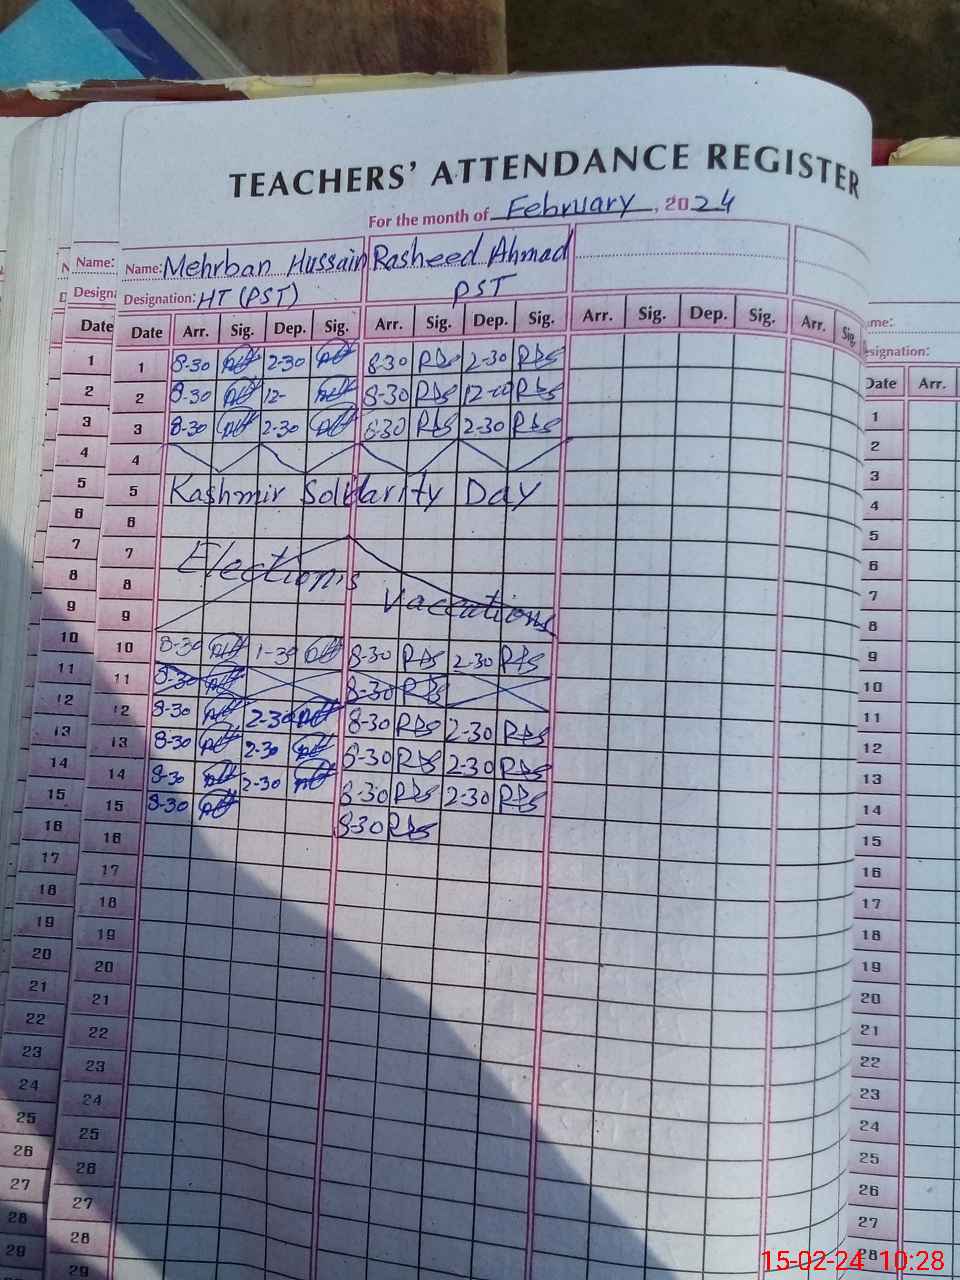 TEACHERS' ATTENDANCE REGISTER
For the month of February, 2024
Name: Mehrban Hussain Rasheed Ahmad
Designation: HT (PST) PST
Date Arr. Sig. Dep. Sig. Arr. Sig. Dep. Sig. Arr. Sig. Dep. Sig. Arr. Sig.
1 8-30 2-30 8-30 RAs 2-30 RAs
2 8-30 12- 8-30 RAs 12-00 RAs
3 8-30 2-30 8-30 RAs 2-30 RAs
4
5 Kashmir Solidarity Day
6
7 Elections
8 vaccations
9
10 8-30 1-30 8-30 RAs 2-30 RAs
11 8-30 8-30 RAs
12 8-30 2-30 8-30 RAs 2-30 RAs
13 8-30 2-30 8-30 RAs 2-30 RAs
14 8-30 2-30 8-30 RAs 2-30 RAs
15 8-30 8-30 RAs
16
17
18
19
20
21
22
23
24
25
26
27
28
29
Name:
Date
1
2
3
4
5
6
7
8
9
10
11
12
13
14
15
16
17
18
19
20
21
22
23
24
25
26
27
28
29
Date Arr.
1
2
3
4
5
6
7
8
9
10
11
12
13
14
15
16
17
18
19
20
21
22
23
24
25
26
27
28
15-02-24 10:28